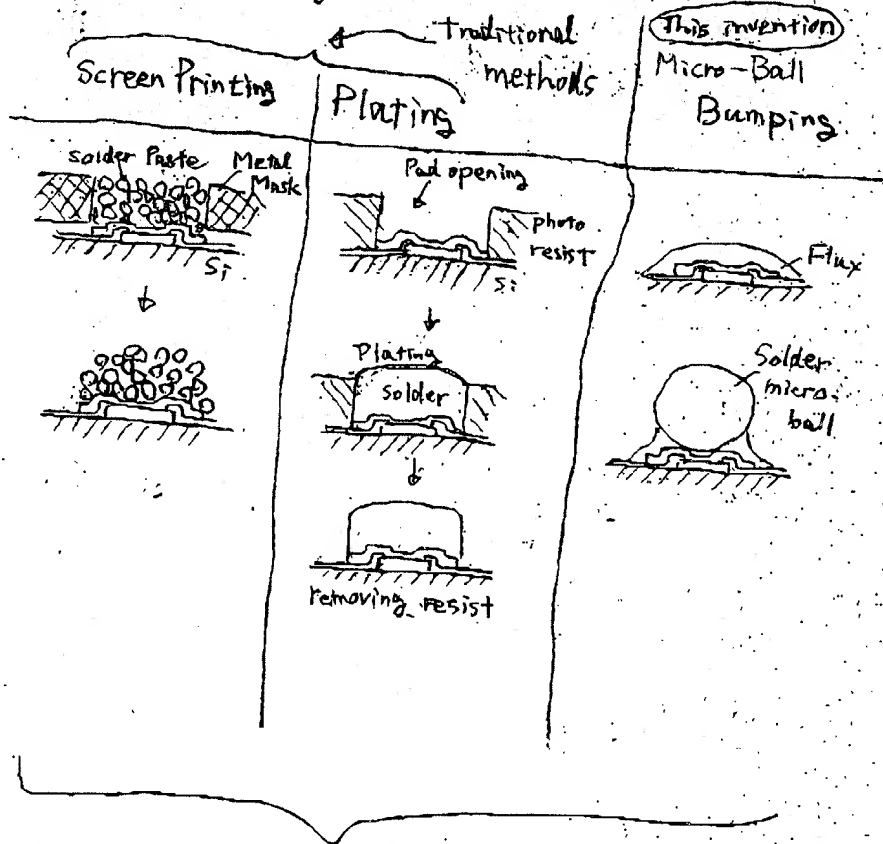 Traditional
methods
This invention
Micro-Ball
Bumping
Screen Printing
Plating
Solder Paste
Metal
Mask
Si
Pad opening
photo
resist
Si
Plating
Solder
removing resist
Flux
Solder
micro-
ball